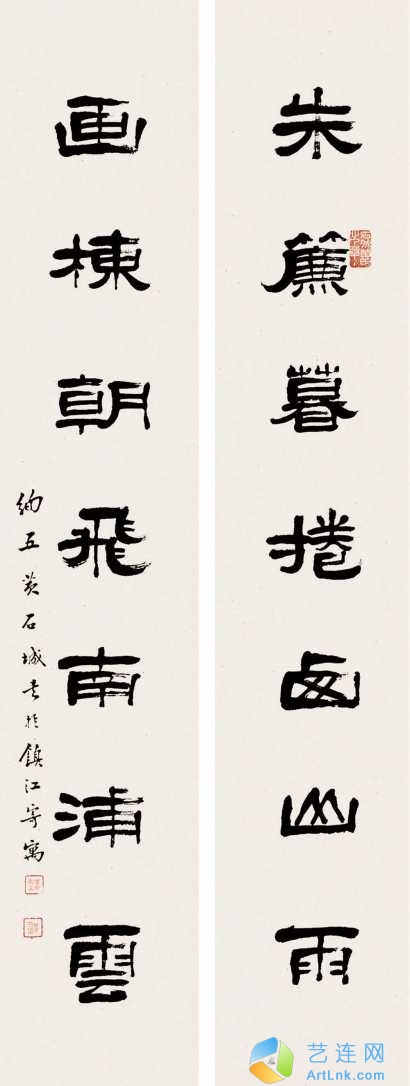 朱簾暮捲西山雨
画棟朝飛南浦雲
五黄石城書於鎮江寄寓
艺连网
ArtLnk.com